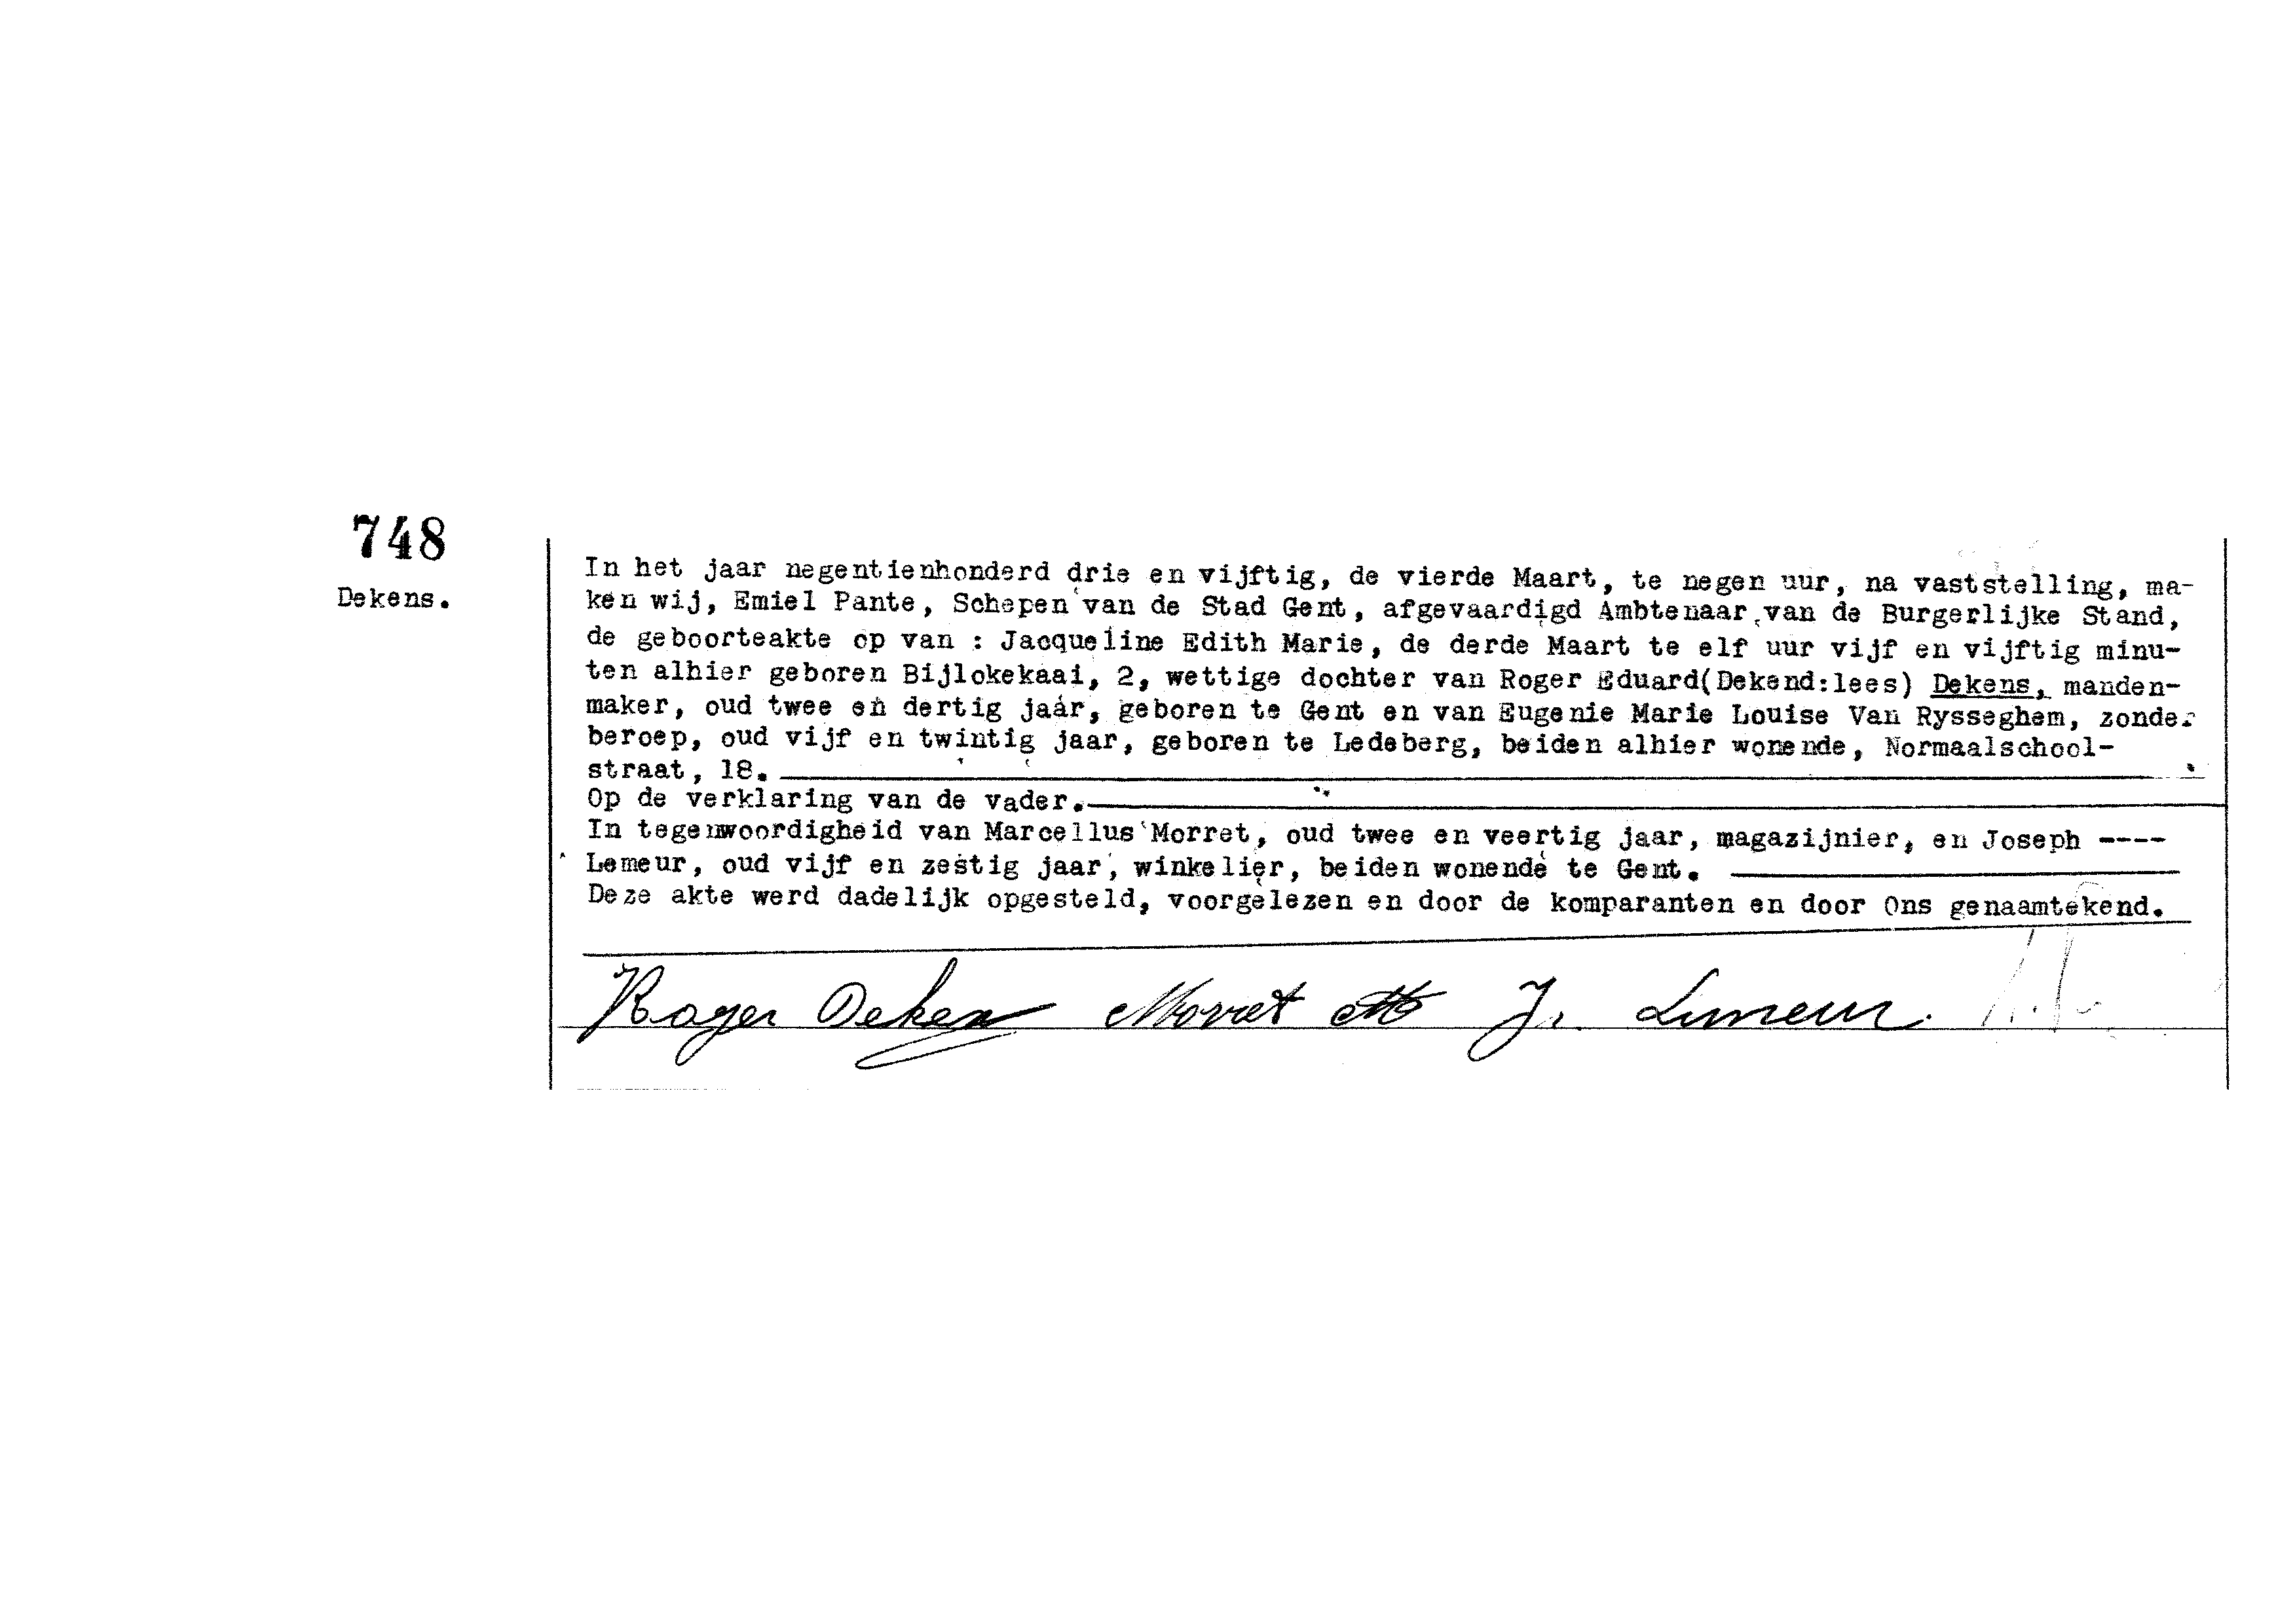 748
Dekens.
In het jaar negentienhonderd drie en vijftig, de vierde Maart, te negen uur, na vaststelling, ma-
ken wij, Emiel Pante, Schepen van de Stad Gent, afgevaardigd Ambtenaar van de Burgerlijke Stand,
de geboorteakte op van : Jacqueline Edith Marie, de derde Maart te elf uur vijf en vijftig minu-
ten alhier geboren Bijlokekaai, 2, wettige dochter van Roger Eduard(Dekend:lees) Dekens, manden-
maker, oud twee en dertig jaar, geboren te Gent en van Eugenie Marie Louise Van Rysseghem, zonder
beroep, oud vijf en twintig jaar, geboren te Ledeberg, beiden alhier wonende, Normaalschool-
straat, 18.
Op de verklaring van de vader.
In tegenwoordigheid van Marcellus Morret, oud twee en veertig jaar, magazijnier, en Joseph ----
Lemeur, oud vijf en zestig jaar, winkelier, beiden wonende te Gent.
Deze akte werd dadelijk opgesteld, voorgelezen en door de komparanten en door Ons genaamtekend.
Roger Dekens Morret Js. Lemeur.